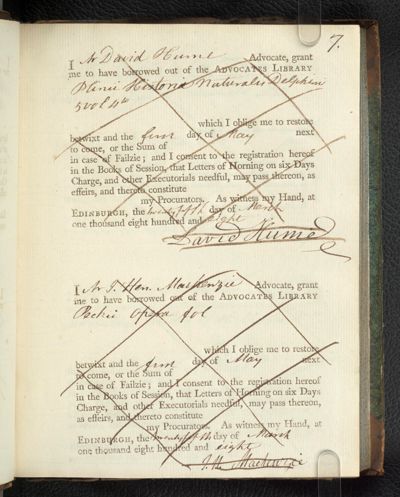 7.
I Mr David Hume Advocate, grant
me to have borrowed out of the ADVOCATES LIBRARY
Plinii Historia Naturalis Delphini
5 vol 4to
which I oblige me to restore
betwixt and the first day of May next
to come, or the Sum of
in case of Failzie; and I consent to the registration hereof
in the Books of Session, that Letters of Horning on six Days
Charge, and other Executorials needful, may pass thereon, as
effeirs, and thereto constitute
my Procurators. As witness my Hand, at
EDINBURGH, the twenty fifth day of March
one thousand eight hundred and eight
David Hume
I Mr J. Hen. Mackenzie Advocate, grant
me to have borrowed out of the ADVOCATES LIBRARY
Opera fol
which I oblige me to restore
betwixt and the first day of May next
to come, or the Sum of
in case of Failzie; and I consent to the registration hereof
in the Books of Session, that Letters of Horning on six Days
Charge, and other Executorials needful, may pass thereon,
as effeirs, and thereto constitute
my Procurators. As witness my Hand, at
EDINBURGH, the twenty fifth day of March
one thousand eight hundred and eight
J. H. Mackenzie